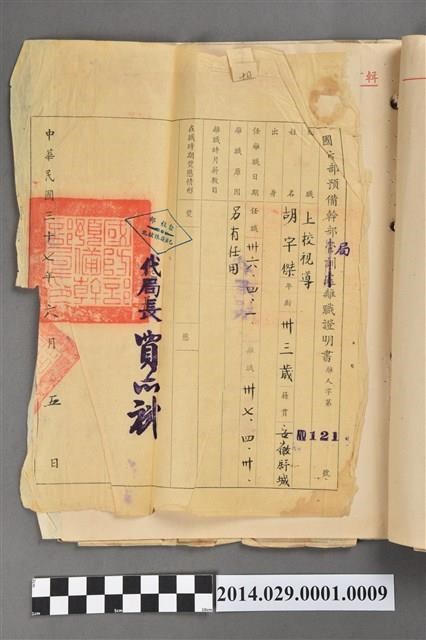 國防部預備幹部局離職證明書 離人字第 121 號
職 上校視導
姓名 胡字傑 年齡 卅三歲 籍貫 安徽舒城
出身
任離職日期 任職 卅六.四.一. 離職 卅七.四.卅.
離職原因 另有任用
離職時月薪數目
在職時期獎懲情形 獎 懲
代局長 賈亦斌
中華民國三十七年六月五日
輯
2014.029.0001.0009